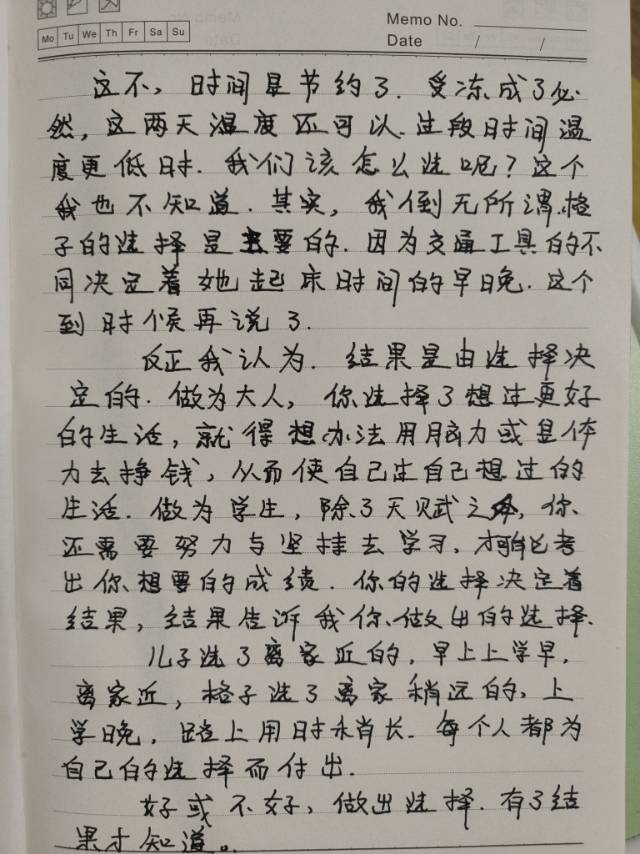 Memo No.
Mo Tu We Th Fr Sa Su
Date / /
这不，时间是节约了．受冻成了必
然，这两天温度还可以．过段时间温
度更低时．我们该怎么选呢？这个
我也不知道．其实，我倒无所谓．格
子的选择是主要的．因为交通工具的不
同决定着她起床时间的早晚．这个
到时候再说了．
反正我认为．结果是由选择决
定的．做为大人，你选择了想过更好
的生活，就得想办法用脑力或是体
力去挣钱，从而使自己过自己想过的
生活．做为学生，除了天赋之外，你
还需要努力与坚持去学习，才能考
出你想要的成绩．你的选择决定着
结果，结果告诉我你做出的选择．
儿子选了离家近的，早上上学早，
离家近，格子选了离家稍远的，上
学晚，路上用时稍长．每个人都为
自己的选择而付出．
好或不好，做出选择．有了结
果才知道。